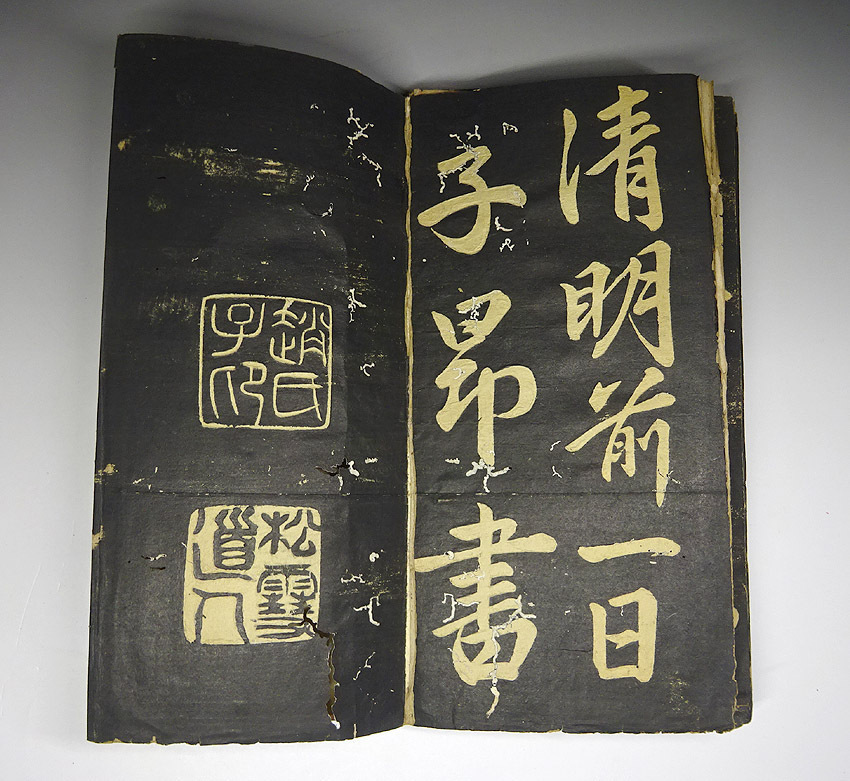 清明前一日
子昂書
趙氏子印
松雪道人